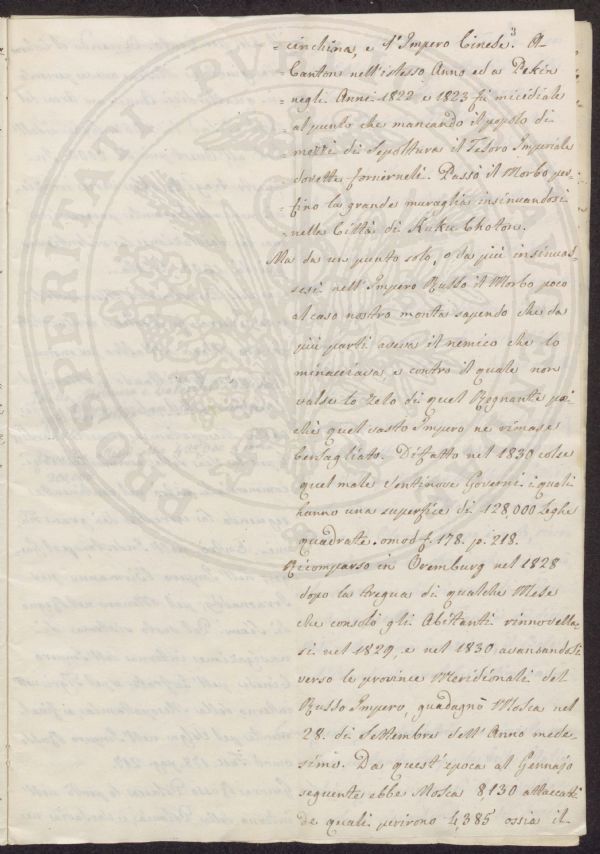 3
=cinchina, e l'Impero Cinese. A
=Canton nell'istesso Anno ed a Pekin
=negli Anni 1822 e 1823 fù micidiale
=al punto che mancando il popolo di
=mezzi di Sepoltura il Tesoro Imperiale
=dovette fornirneli. Passò il Morbo per
=fino la grande muraglia insinuandosi
=nella Città di Kuku Choton.
Ma da un punto solo, o da più insinuas=
sesi nell'Impero Russo il Morbo poco
al caso nostro monta sapendo che da
più parti aveva il nemico che lo
minacciava e contro il quale non
valse lo Zelo di quel Regnante poi
chè quel vasto Impero ne rimase
bersagliato. Diffatto nel 1830 colse
quel male Ventinove Governi i quali
hanno una superfice di 128,000 Leghe
quadrate. omod f. 178. p. 218.
Ricomparso in Oremburg nel 1828
dopo la tregua di qualche Mese
che consolò gli Abittanti rinnovella
si nel 1829, e nel 1830 avanzandosi
verso le province Meridionali del
Russo Impero, guadagnò Mosca nel
28. di Settembre dell'Anno mede
simo. Da quest'epoca al Gennajo
seguente ebbe Mosca 8,130 attaccati
de quali perirono 4,385 ossia il
PROSPERITATI PUBLICAE